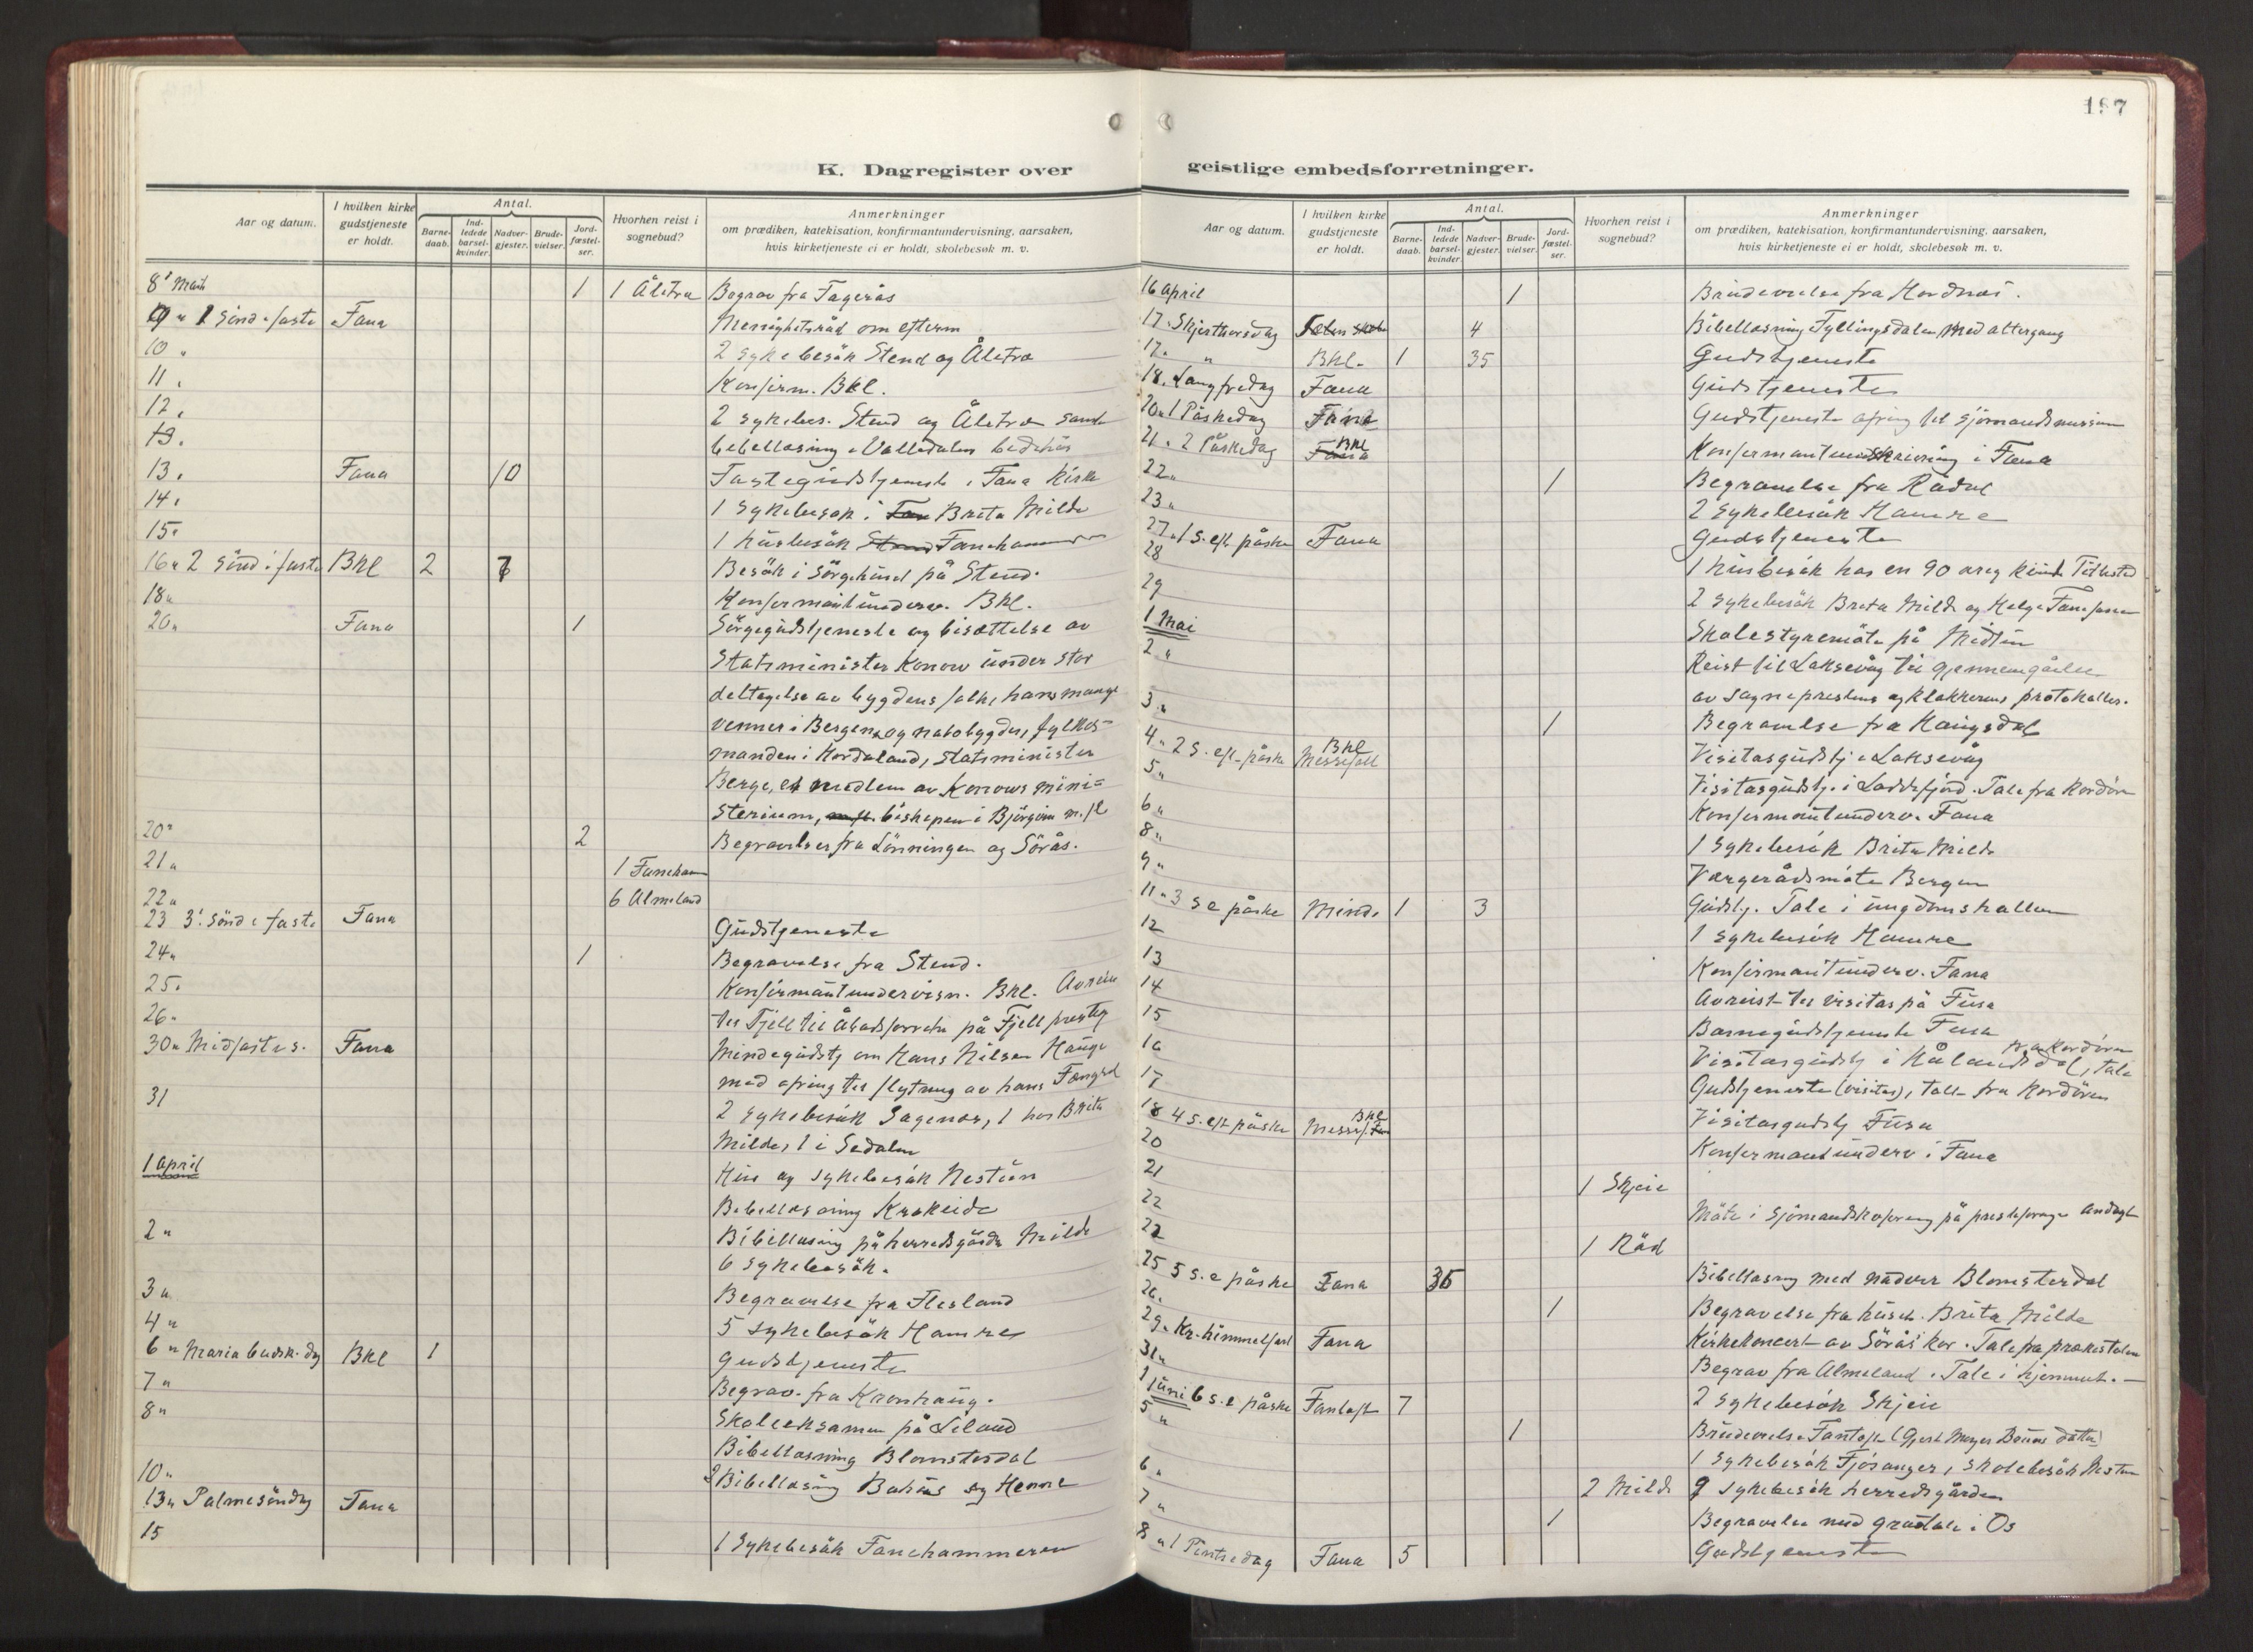 187
K. Dagregister over
Aar og datum.
I hvilken kirke gudstjeneste er holdt.
Antal.
Barne-daab.
Ind-ledede barsel-kvinder.
Nadver-gjester.
Brude-vielser.
Jord-fæstel-ser.
Hvorhen reist i sognebud?
Anmerkninger
om prædiken, katekisation, konfirmantundervisning, aarsaken,
hvis kirketjeneste ei er holdt, skolebesøk m. v.
8' 1 1 Åletræ Begrav fra Fagerås
1 sönd i faste Fana om efterm
10 " 2 sykebesök Stend og Åletræ
11 " Konfirm. BKl.
12 " 2 sykebes. Stend og Åletræ samt
13 " bibellæsning i bedehus
13 " Fana 10 Fastegudstjeneste i Fana Kirke
14 " 1 sykebesök i Brita Milde
15 " 1 husbesök Fanehammeren
16 " 2 sönd i faste BKl 2 7 Besök i sörgehuset på Stend.
18 " Konfirmantunderv. BKl.
20 " Fana 1 Sörgegudstjeneste og bisættelse av
Statsminister Konow under stor
deltagelse av bygdens folk, hans mange
venner i Bergen og nabobygder, fylkes=
manden i Hordaland, Statsminister
Berge, et medlem av Konows mini=
sterium, biskopen i Björgvin m. fl
20 " 2 Begravelser fra Lönningen og Sörås.
21 " 1 Faneham
22 " 6 Almeland
23 3' sönd i faste Fana Gudstjeneste
24 " 1 Begravelse fra Stend.
25 " Konfirmantundervisn. BKl.
26 " til Fjell til på Fjell
30 " Midfastes. Fana Mindegudstj om Hans Nilsen Hauge
med ofring til flytning av hans
31 2 sykebesök 1 hos Brita
Milde, 1 i Sædalen
1 April Hus og sykebesök Nestun
Bibellæsning Krokeide
2 " Bibellæsning på herredsgården Milde
6 sykebesök.
3 " Begravelse fra Flesland
4 " 5 sykebesök Hamre
6 " Maria budsk. dg BKl 1 Gudstjeneste
7 " Begrav. fra Kronhaug.
8 " Skoleeksamen på Liland
Bibellæsning Blomsterdal
10 " 2 Bibellæsning og
13 " Palmesöndag Fana
15 1 Sykebesök Fanehammeren
geistlige embedsforretninger.
Aar og datum.
I hvilken kirke gudstjeneste er holdt.
Antal.
Barne-daab.
Ind-ledede barsel-kvinder.
Nadver-gjester.
Brude-vielser.
Jord-fæstel-ser.
Hvorhen reist i sognebud?
Anmerkninger
om prædiken, katekisation, konfirmantundervisning, aarsaken,
hvis kirketjeneste ei er holdt, skolebesøk m. v.
16 April 1 Brudevielse fra Hordnes.
17. Skjærthorsdag 4 Bibellæsning Fyllingsdalen med altergang
17. " BKl. 1 35 Gudstjeneste
18. Langfredag Fana Gudstjeneste
20 " 1 Påskedag Fana Gudstjeneste ofring til sjömandsmission
21 " 2 Påskedag BKl Konfirmantindskrivning i Fana
22 " 1 Begravelse fra Rådal
23 " 2 sykebesök Hamre
27 " 1 S. eft påske Fana Gudstjeneste
28 1 husbesök hos en 90 årig kvinde
29 2 sykebesök Brita Milde og Helge
1 Mai Skolestyremöte på Midtun
2 " Reist til Laksevåg til gjennemgåelse
av sogneprestens og klokkerens protokoller.
3 " 1 Begravelse fra Haugsdal
4 " 2 S. eft. påske BKl Messefall Visitasgudstj i Laksevåg
5 " Visitasgudstj. i Loddefjord. Tale fra Kordören
6 " Konfirmantunderv. Fana
8 " 1 sykebesök Brita Milde
9 " Værgerådsmöte Bergen
11 " 3 s e påske Minde 1 3 Gudstj. Tale i ungdomshallen
12 1 sykebesök Hamre
13 Konfirmantunderv. Fana
14 Avreist til visitas på Fusa
15 Barnegudstjeneste Fusa
16 Visitasgudstj i Hålandsdal, tale fra Kordören
17 Gudstjeneste (visitas), tale fra Kordören
18 4 s. eft påske BKl Visitasgudstj Fusa
20 Konfirmantunderv i Fana
21 1 Skjeie
22 Möte i på
22 1 Råd
25 5 s. e påske Fana 36 Bibellæsning med nadver Blomsterdal
26 " 1 Begravelse fra Brita Milde
29. Kr. himmelfart Fana Kirkekoncert av Sörås kor. Tale fra prækestolen
31 " Begrav fra Almeland. Tale i hjemmet.
1 Juni 6 s. e påske Fantoft 7 2 sykebesök Skjeie
5 " 1 Brudevielse Fantoft (Gjert Meyer datter)
6 " 1 sykebesök Fjösanger, skolebesök
7 " 2 Milde 9 sykebesök herredsgården
1 Begravelse med i Os
8 " 1 Pintsedag Fana 5 Gudstjeneste